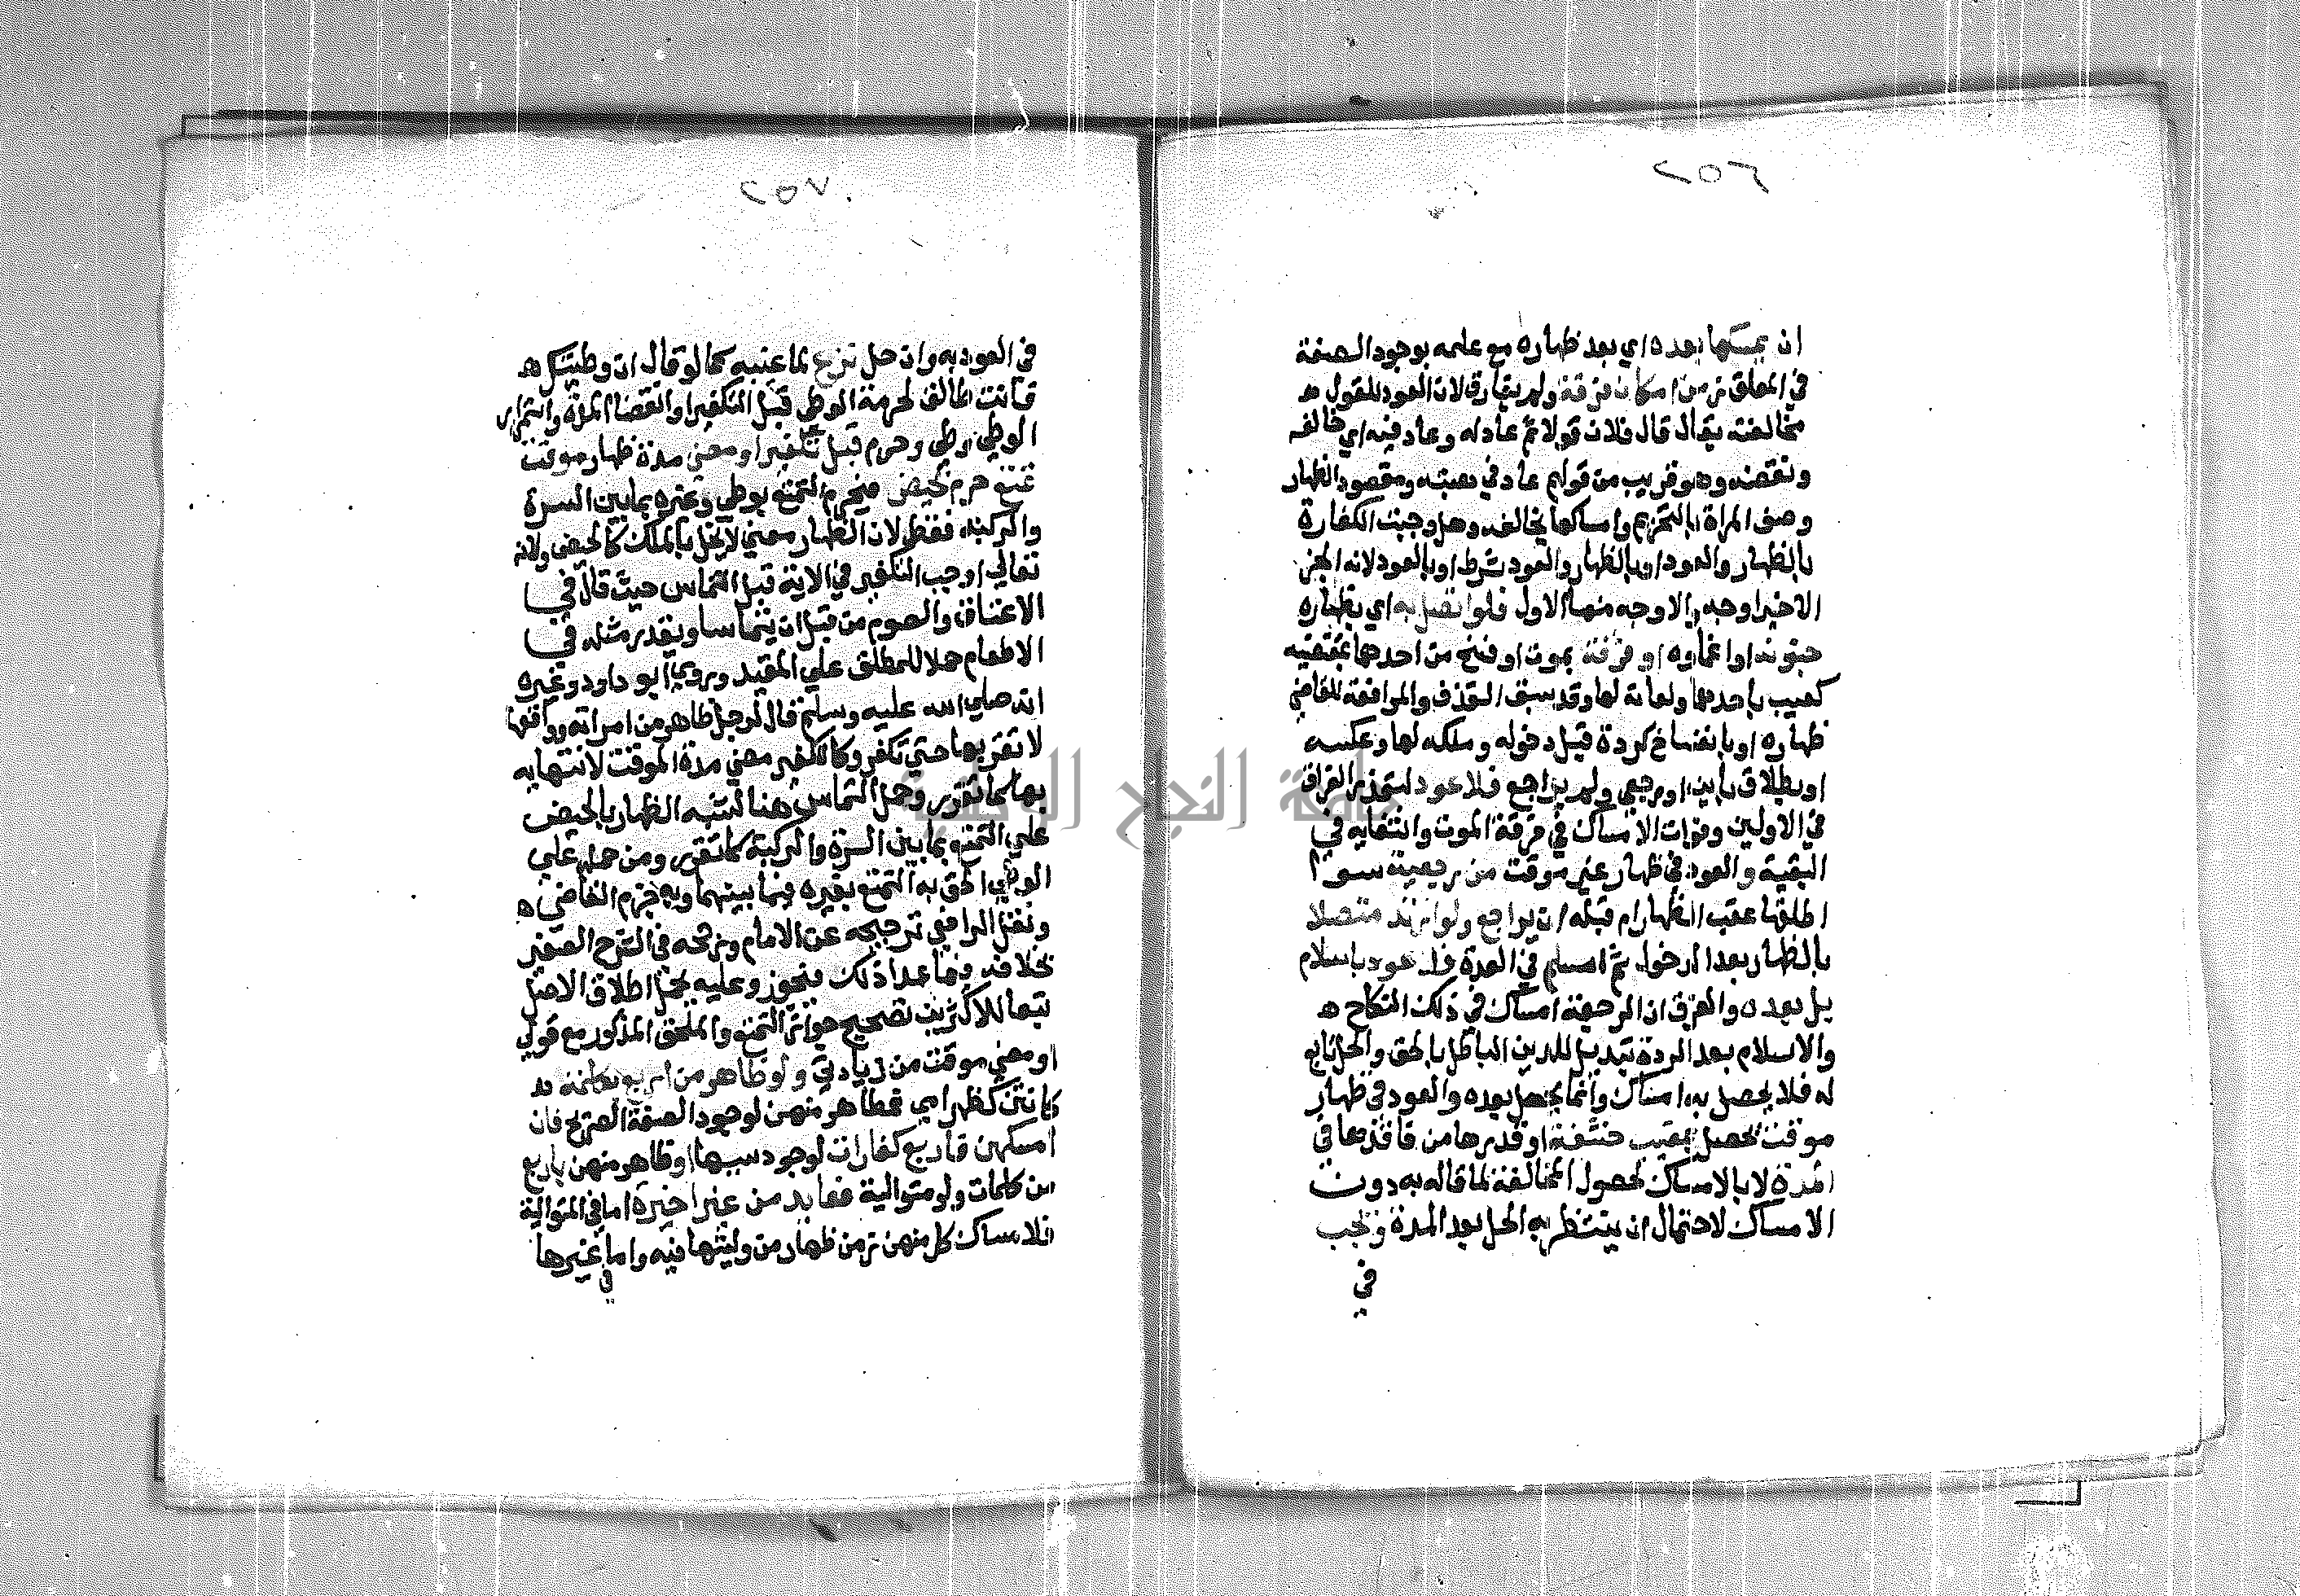 ٢٥٦
ان يمسكها بعده اي بعد ظهاره مع علمه بوجود الصفة
في المعلق زمن امكان فرقة ولم يفارق لان العود للقول ھ
مخالفته يقال قال فلان قولا ثم عاد له وعاد فيه اي خالفه
ونقضه وهو قريب من قولهم عاد في هبته ومقصود الظهار
وصف المراة بالتحريم وامساكها يخالفه وهل وجبت الكفارة
بالظهار والعود او بالظهار والعود شرط او بالعود لانه الجز
الاخير اوجه والاوجه منها الاول فلو اتصل به اي بظهاره
جنونه او اغماوه او فرقة بموت او فسخ من احدهما بمقتضيه
كعيب باحدهما ولعانه لها وقد سبق القذف والمرافعة للقاضي
ظهاره او بانفساخ كردة قبل دخوله وملكه لها وعكسه
او بطلاق باين او رجعي ولم يراجع فلا عود لتعذر الفراق
في الاولين وفوات الامساك في فرقة الموت وانتفايه في
البقية والعود في ظهار غير موقت من رجعية سوآ
اطلقها عقب الظهار ام قبله ان يراجع ولو ارتد متصلا
بالظهار بعد الدخول ثم اسلم في العدة فلا عود باسلام
بل بعده والفرق ان الرجعة امساك في ذلك النكاح ھ
والاسلام بعد الردة تبديل للدين الباطل بالحق والحل تابع
له فلا يحصل به امساك وانما يحصل بعده والعود في ظهار
موقت يحصل بمغيب حشفة او قدرها من فاقدها في
المدة لا بالامساك لحصول المخالفة لما قاله به دون
الامساك لاحتمال ان ينتظر به الحل بعد المدة ويجب
في
٢٥٧
في العود به وان حل نزع لما غيبه كما لو قال ان وطيتك ھ
فانت طالق لحرمة الوطي قبل التكفير او انقضا المدة واستمرار
الوطي وطي وحرم قبل تكفير او مضي مدة ظهار موقت
تمتع حرم بحيض فيحرم التمتع بوطي وغيره بما بين السرة
والركبة فقط لان الظهار معني لا يخل بالملك كالحيض ولانه
تعالي اوجب التكفير في الاية قبل التماس حيث قال في
الاعتاق والصوم من قبل ان يتماسا ويقدر مثله في
الاطعام حملا للمطلق علي المقيد وروي ابو داود وغيره
انه صلي الله عليه وسلم قال لرجل ظاهر من امراته وواقعها
لا تقربها حتي تكفر وكالتكفير مضي مدة الموقت لانتهايه
بها كما تقرر وحمل التماس هنا لشبه الظهار بالحيض
علي التمتع بما بين السرة والركبة كما تقرر ومن حمله علي
الوطي الحق به التمتع بغيره فيما بينهما وبه جزم القاضي ھ
ونقل الرافعي ترجيحه عن الامام ورجحه في الشرح الصغير
بخلافه فيما عدا ذلك فيجوز وعليه يحمل اطلاق الاصل
تبعا للاكثرين تصحيح جواز التمتع والملحق المذكور مع قولي
او مضي موقت من زيادتي ولو ظاهر من اربع بكلمة
كانتن كظهر امي فمظاهر منهن لوجود الصفة الصريح فان
امسكهن فاربع كفارات لوجود سببها او ظاهر منهن باربع
من كلمات ولو متوالية فعايد من غير اخيرة اما في المتوالية
فلامساك كل منهن زمن ظهار من وليتها فيه واما غيرها
في
جامعة النجاح الوطنية